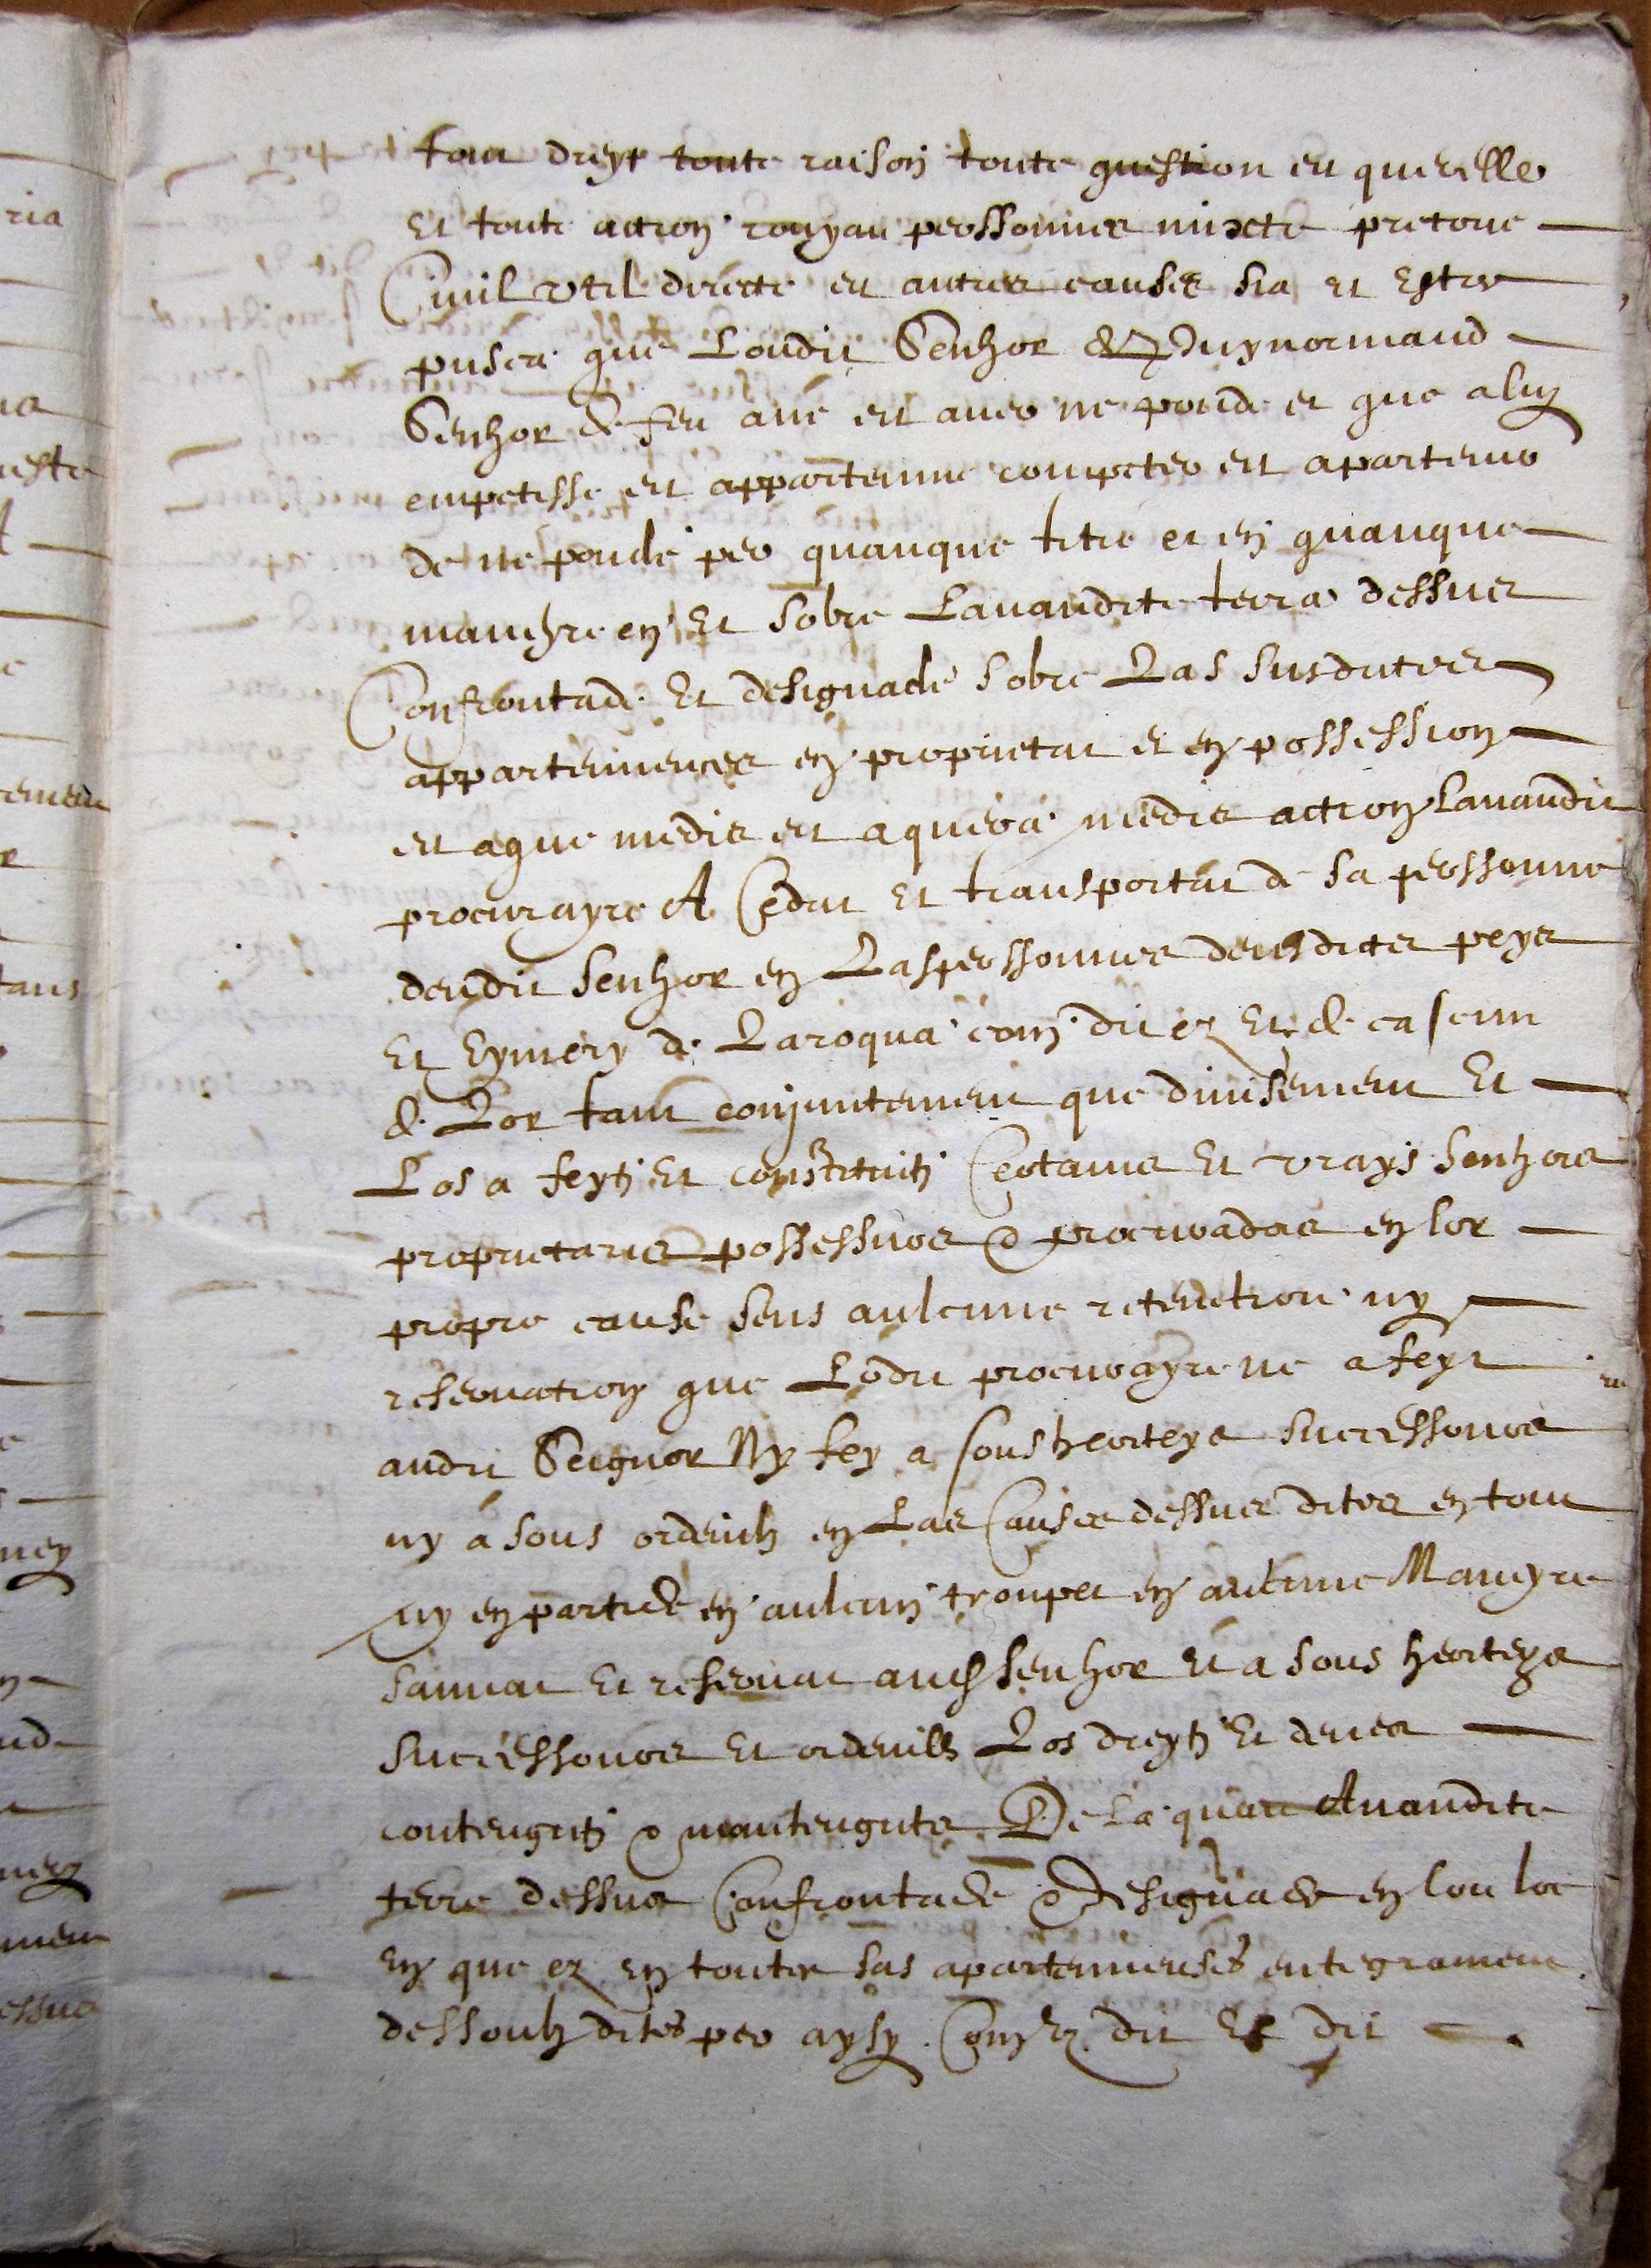 tout dreyt toute raison toute question et querelle
Et toute action rouyau perssonnes mixcte pretorie
Civil util directe et autres causes sia et Estre
pusca que Loudit Senhor normand
Senhor de feu ave et aver ne poude et que a luy
empetisse et appartenme competer et apartenir
de ne poude per quauque titre et en quauque
maneyre en Et sobre Lavandite terra dessus
Confrontade Et designade sobre Las susdites
appartenences en proprietat et en possession
et aque medis et aquera medis action Lavandit
procurayre A Cedut Et transportat de sa perssonne
deudit Senhor en Las perssonnes deusdites peys
Et Eymery de Laroqua com dit ez Et de cascun
de Lor tant conjuntement que divisement Et
Los a feyti Et constituiti Certans Et vrays senhors
proprietaris possessuors & procurados en lor
propre cause sens aulcune retenction ny
reservation que Lodit procurayre ne a feyt
audit Seignor Ny fey a sous herteys successours
ny a sous ordenh en Las Causes dessus dites en tout
ny en partide en aulcun troupet en aulcune Maneyre
sauvat Et reservat aud senhor Et a sous herteys
successours Et ordenih Los dreyti Et devers
contenguti & mantengutes De la quau Avandite
terre dessus Confrontade & designade en lou loc
en que ez en toutes sas apartenenses entegrament
dessouh dites per aysy Com ez dit Et dit
ria
ement
tans
essus